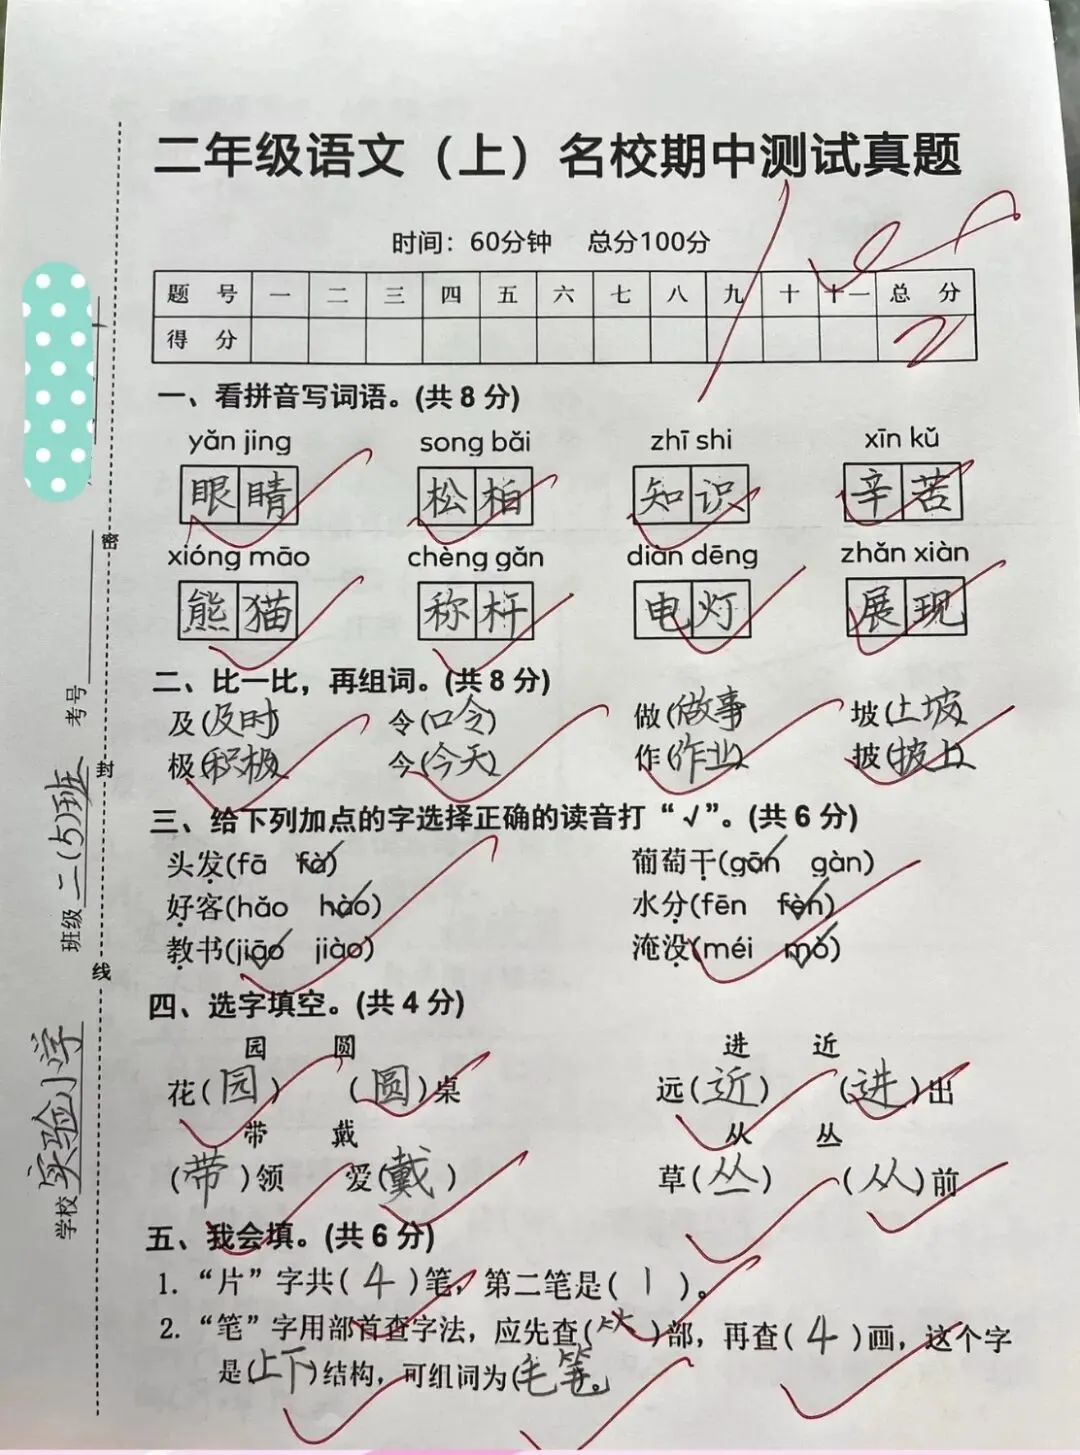 二年级语文（上）名校期中测试真题
时间：60分钟 总分100分
题 号 一 二 三 四 五 六 七 八 九 十 十一 总 分
得 分
一、看拼音写词语。(共 8 分)
yǎn jing song bǎi zhī shi xīn kǔ
眼睛 松柏 知识 辛苦
xióng māo chèng gǎn diàn dēng zhǎn xiàn
熊猫 称杆 电灯 展现
二、比一比，再组词。(共 8 分)
及(及时) 令(口令) 做(做事) 坡(土坡)
极(积极) 今(今天) 作(作业) 披(披上)
三、给下列加点的字选择正确的读音打“√”。(共 6 分)
头发(fā fà) 葡萄干(gān gàn)
好客(hǎo hào) 水分(fēn fèn)
教书(jiāo jiào) 淹没(méi mò)
四、选字填空。(共 4 分)
园 圆 进 近
花(园) (圆)桌 远(近) (进)出
带 戴 从 丛
(带)领 爱(戴) 草(丛) (从)前
五、我会填。(共 6 分)
1. “片”字共(4)笔，第二笔是(丨)。
2. “笔”字用部首查字法，应先查(⺮)部，再查(4)画，这个字
是(上下)结构，可组词为(毛笔。)
学校 实验小学 班级 二(5)班 考号
密 封 线